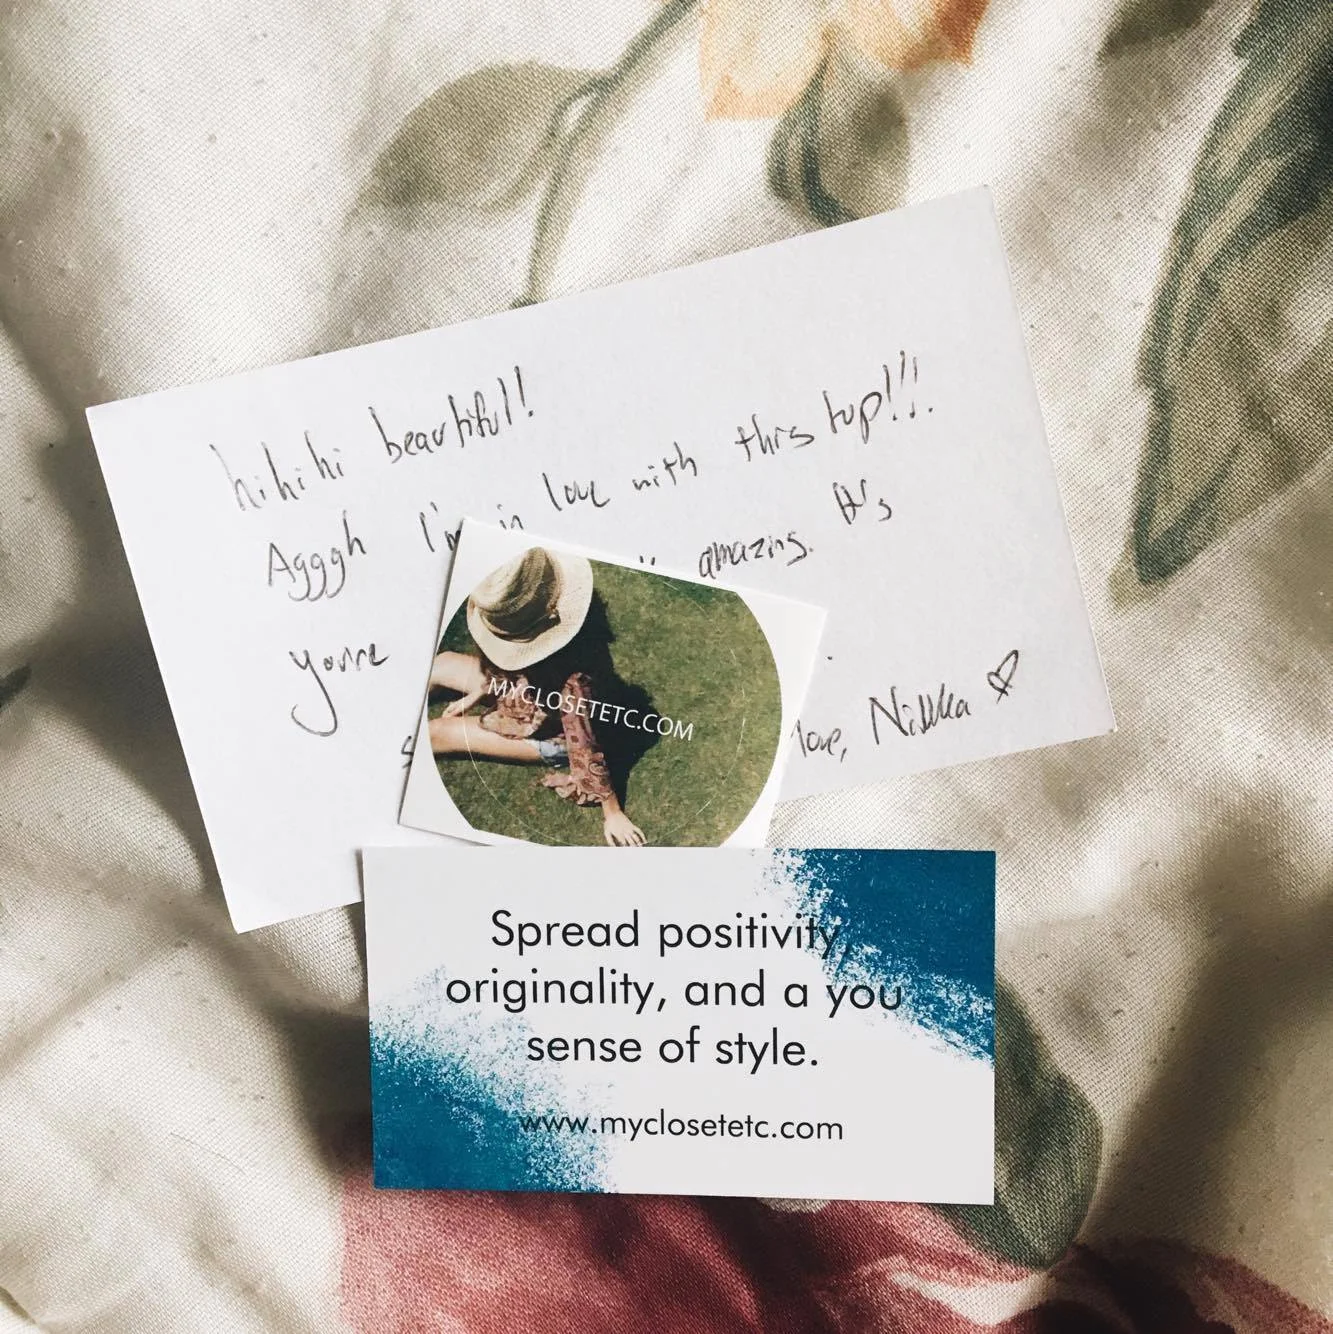 hihihi beautiful!
Agggh I'm in love with this top!!!
you're amazing. It's
love, Nikka
MYCLOSETETC.COM
Spread positivity,
originality, and a you
sense of style.
www.myclosetetc.com